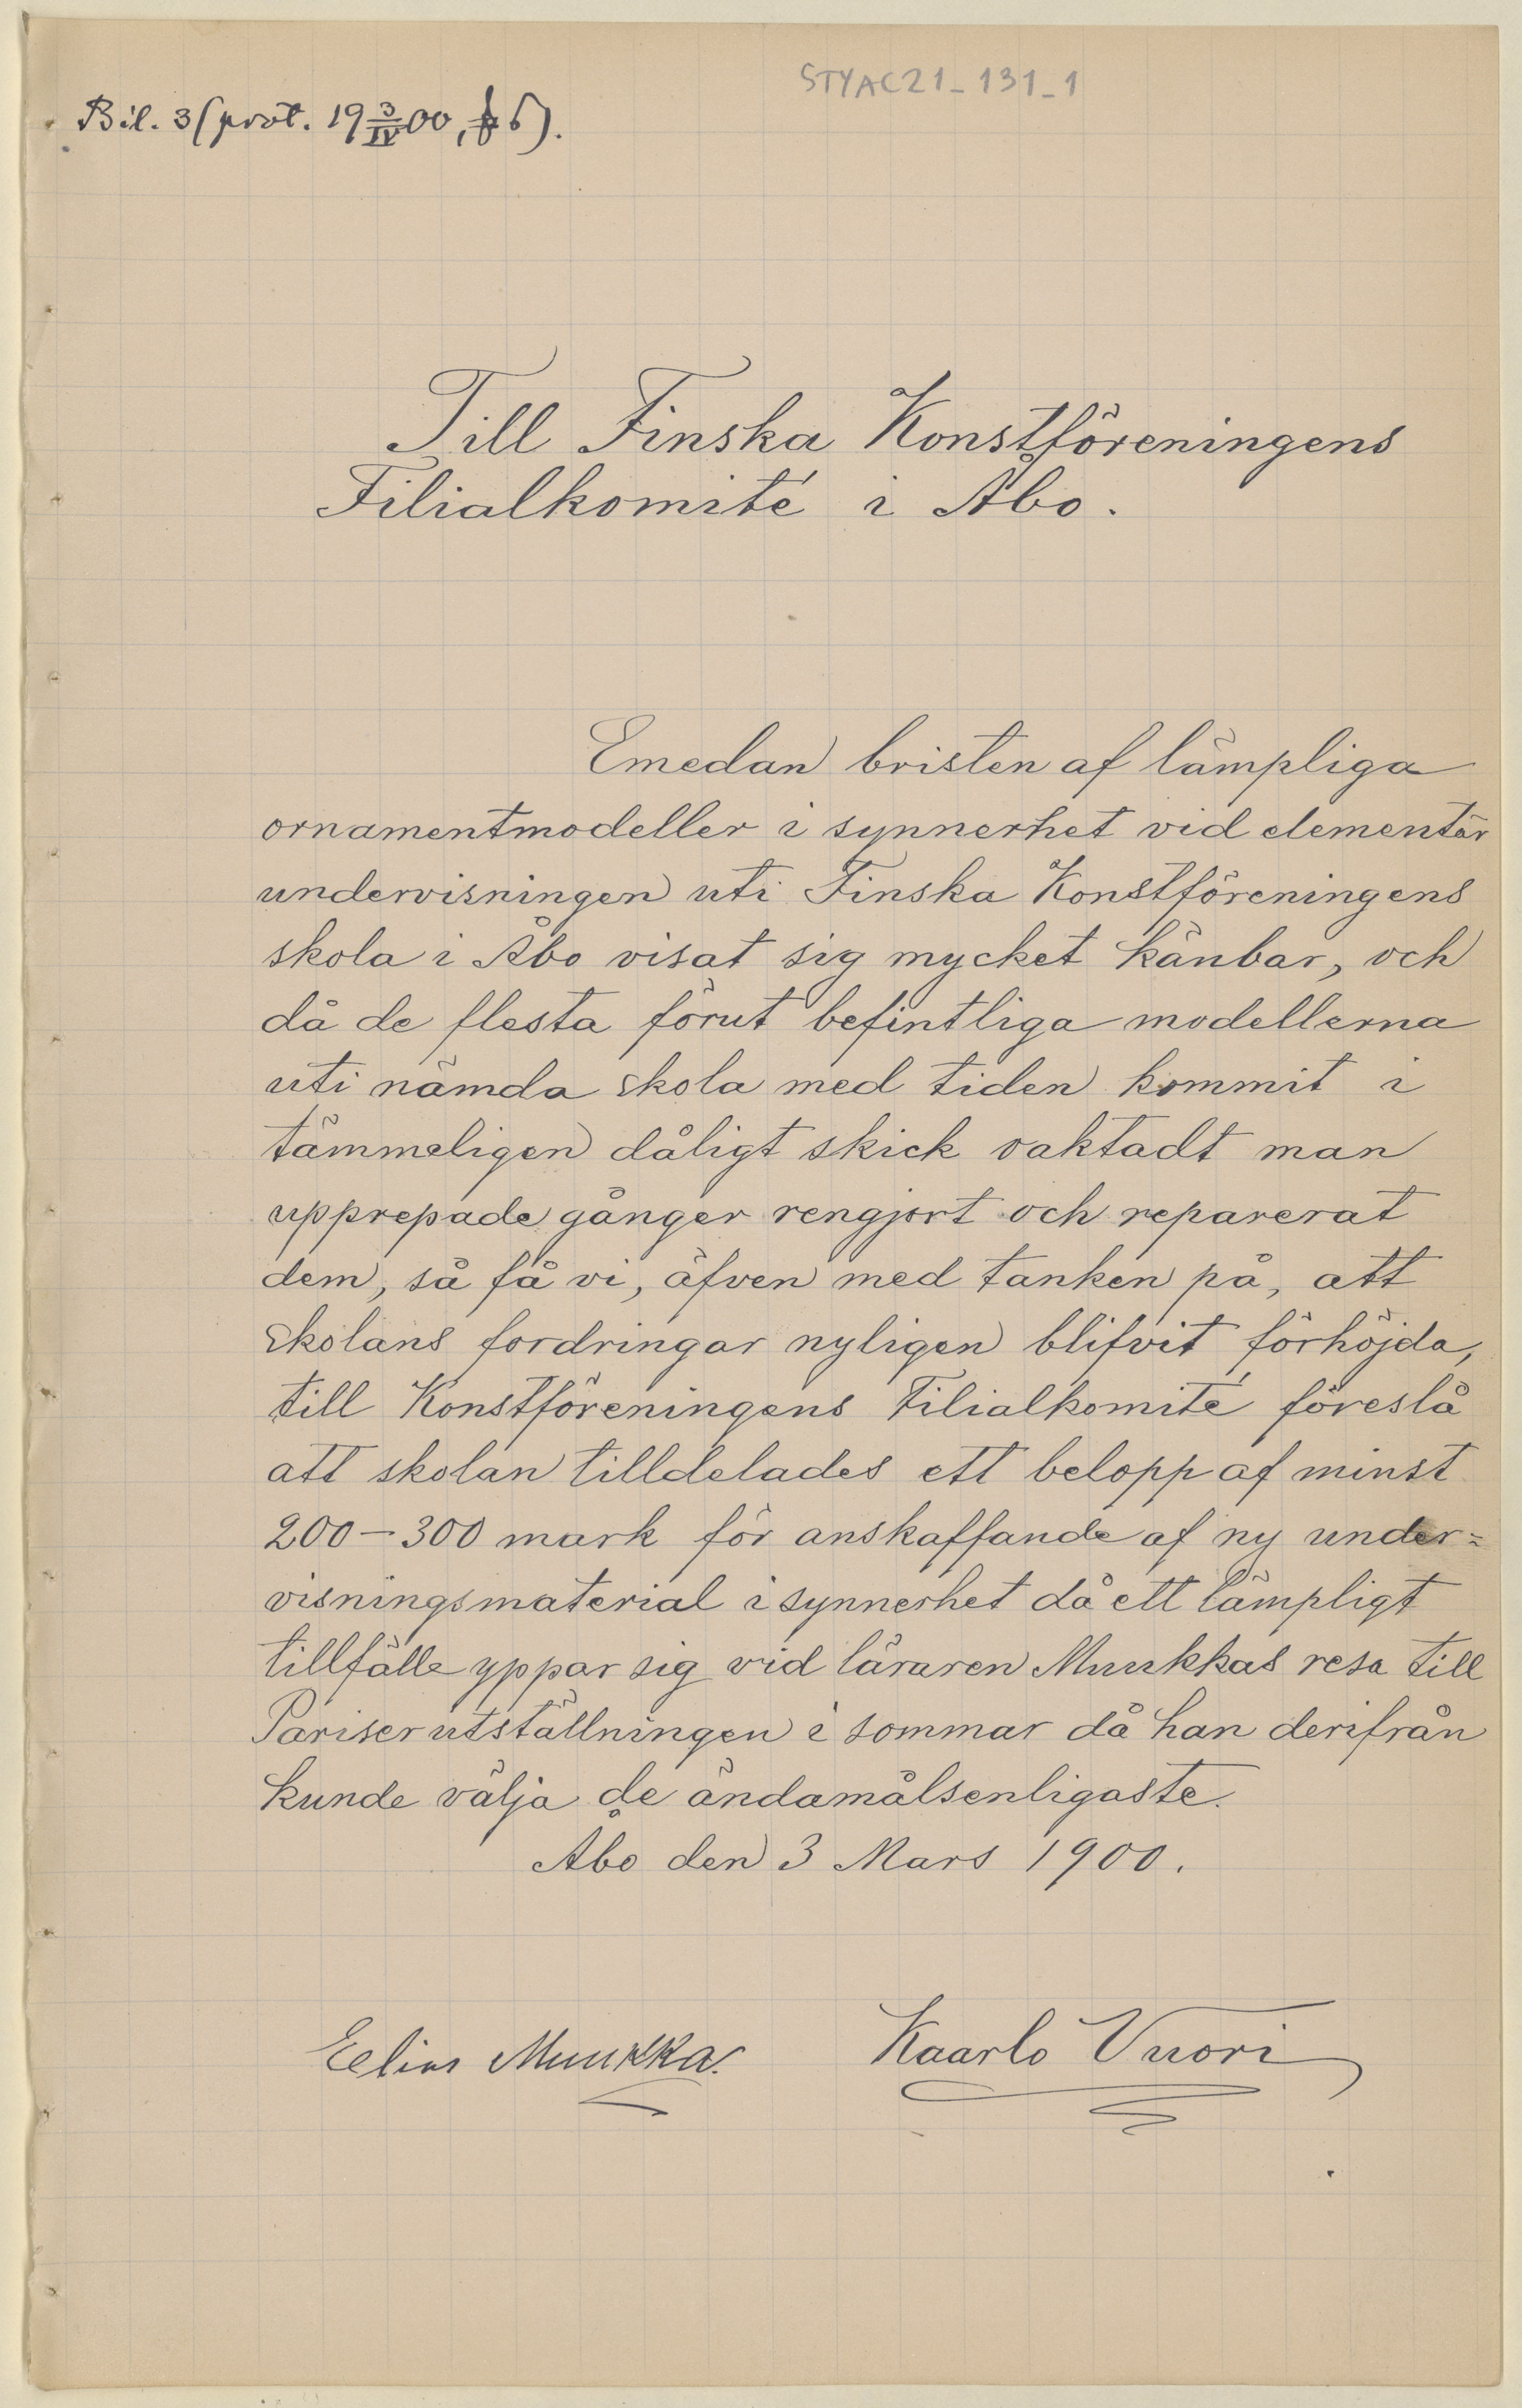 STYAC21_131_1
Bil. 3 (prot. 19 3/IV 00, § 6).
Till Finska Konstföreningens
Filialkomité i Åbo.
Emedan bristen af lämpliga
ornamentmodeller i synnerhet vid elementär
undervisningen uti Finska Konstföreningens
skola i Åbo visat sig mycket känbar, och
då de flesta förut befintliga modellerna
uti nämda skola med tiden kommit i
tämmeligen dåligt skick oaktadt man
upprepade gånger rengjort och reparerat
dem, så få vi, äfven med tanken på, att
skolans fordringar nyligen blifvit förhöjda,
till Konstföreningens Filialkomité föreslå
att skolan tilldelades ett belopp af minst
200–300 mark för anskaffande af ny under=
visningsmaterial i synnerhet då ett lämpligt
tillfälle yppar sig vid läraren Muukkas resa till
Pariser utställningen i sommar då han derifrån
kunde välja de ändamålsenligaste.
Åbo den 3 Mars 1900.
Eelias Muukka.
Kaarlo Vuori